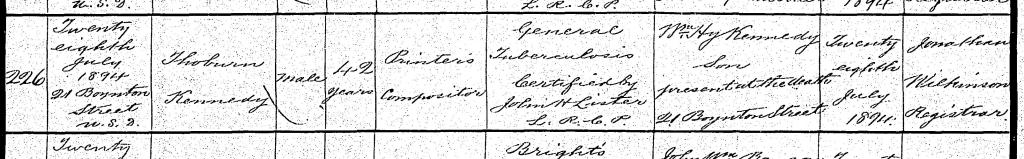 U.S.D.
L.R.C.P.
1894
226
Twenty
eighth
July
1894
21 Boynton
Street
U.S.D.
Thoburn
Kennedy
Male
42
years
Printer's
Compositor
General
Tuberculosis
Certified by
John H Lister
L.R.C.P.
Wm Hy Kennedy
Son
present at the death
21 Boynton Street
Twenty
eighth
July
1894
Jonathan
Wilkinson
Registrar
Twenty
Bright's
John Wm